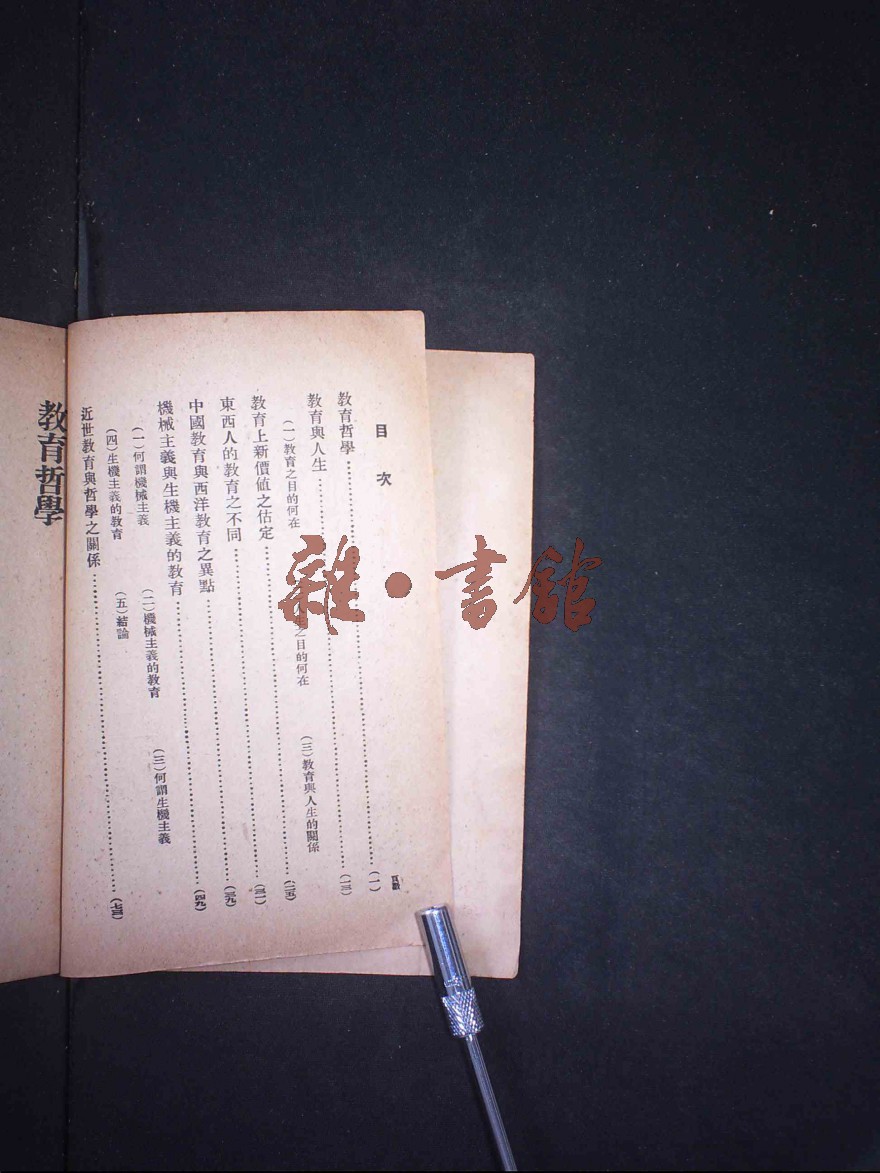 目次
頁數
教育哲學……(一)
教育與人生……(一三)
(一)教育之目的何在 生之目的何在 (三)教育與人生的關係
教育上新價値之估定……(二五)
東西人的教育之不同……(三一)
中國教育與西洋教育之異點……(三九)
機械主義與生機主義的教育……(四九)
(一)何謂機械主義 (二)機械主義的教育 (三)何謂生機主義
(四)生機主義的教育 (五)結論
近世教育與哲學之關係……(七三)
教育哲學
雜·書館